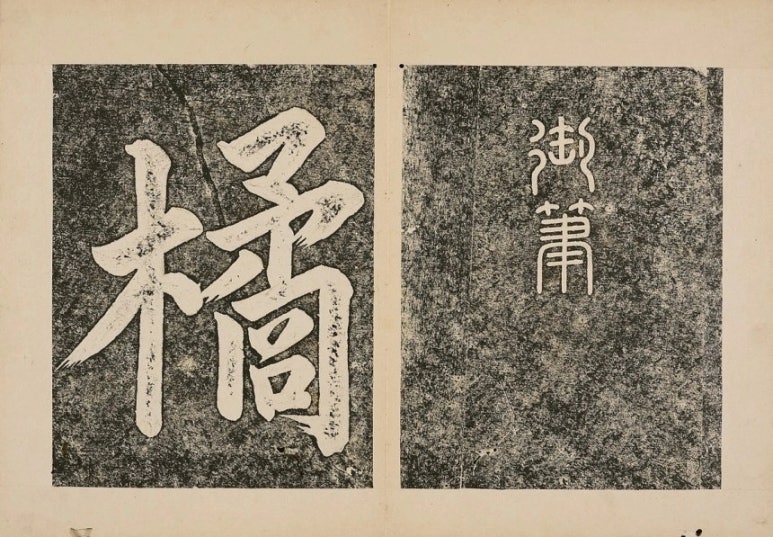 御筆
橘